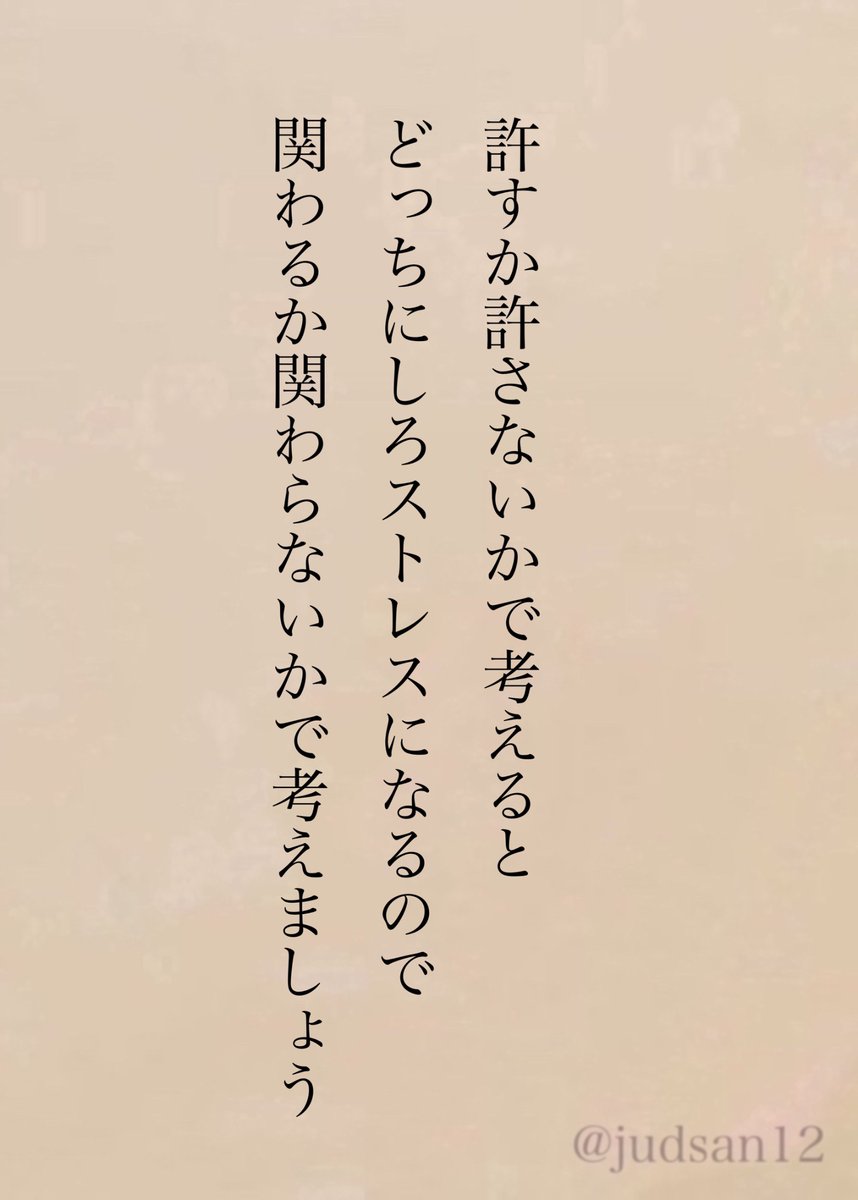 許すか許さないかで考えると
どっちにしろストレスになるので
関わるか関わらないかで考えましょう
@judsan12